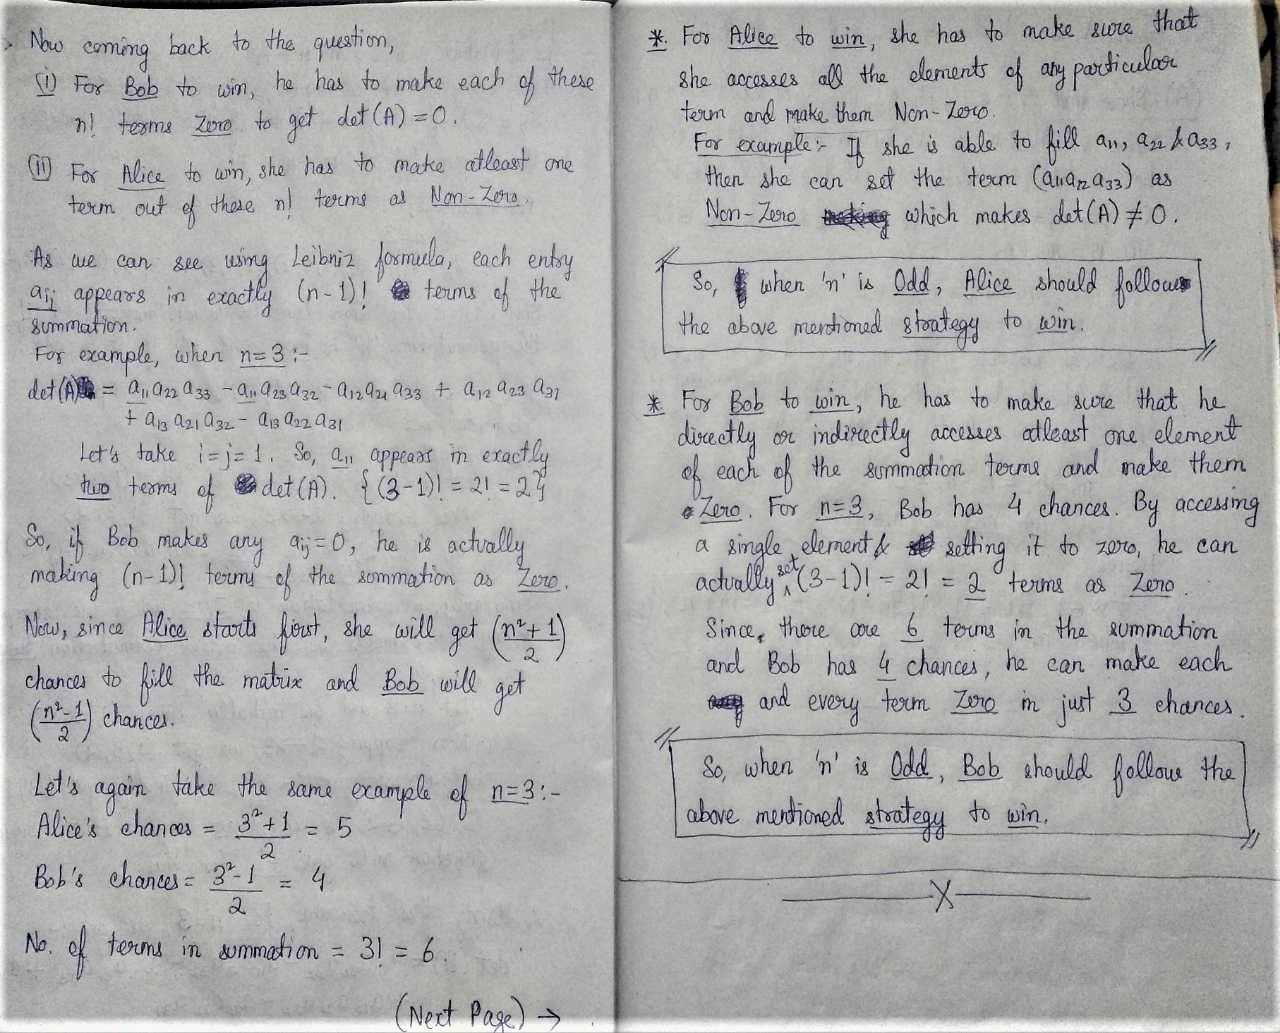 Now coming back to the question,
(i) For Bob to win, he has to make each of these
n! terms Zero to get det(A) = 0.
(ii) For Alice to win, she has to make atleast one
term out of these n! terms as Non-Zero.
As we can see using Leibniz formula, each entry
aij appears in exactly (n-1)! terms of the
summation.
For example, when n=3 :-
det(A) = a11 a22 a33 - a11 a23 a32 - a12 a21 a33 + a12 a23 a31
+ a13 a21 a32 - a13 a22 a31
Let's take i=j=1. So, a11 appears in exactly
two terms of det(A). {(3-1)! = 2! = 2}
So, if Bob makes any aij=0, he is actually
making (n-1)! terms of the summation as Zero.
Now, since Alice starts first, she will get (n²+1/2)
chances to fill the matrix and Bob will get
(n²-1/2) chances.
Let's again take the same example of n=3:-
Alice's chances = 3²+1/2 = 5
Bob's chances = 3²-1/2 = 4
No. of terms in summation = 3! = 6.
(Next Page) →
* For Alice to win, she has to make sure that
she accesses all the elements of any particular
term and make them Non-Zero.
For example:- If she is able to fill a11, a22 & a33,
then she can set the term (a11 a22 a33) as
Non-Zero which makes det(A) ≠ 0.
So, when 'n' is Odd, Alice should follow
the above mentioned strategy to win.
* For Bob to win, he has to make sure that he
directly or indirectly accesses atleast one element
of each of the summation terms and make them
Zero. For n=3, Bob has 4 chances. By accessing
a single element & setting it to zero, he can
actually set (3-1)! = 2! = 2 terms as Zero.
Since, there are 6 terms in the summation
and Bob has 4 chances, he can make each
and every term Zero in just 3 chances.
So, when 'n' is Odd, Bob should follow the
above mentioned strategy to win.
X